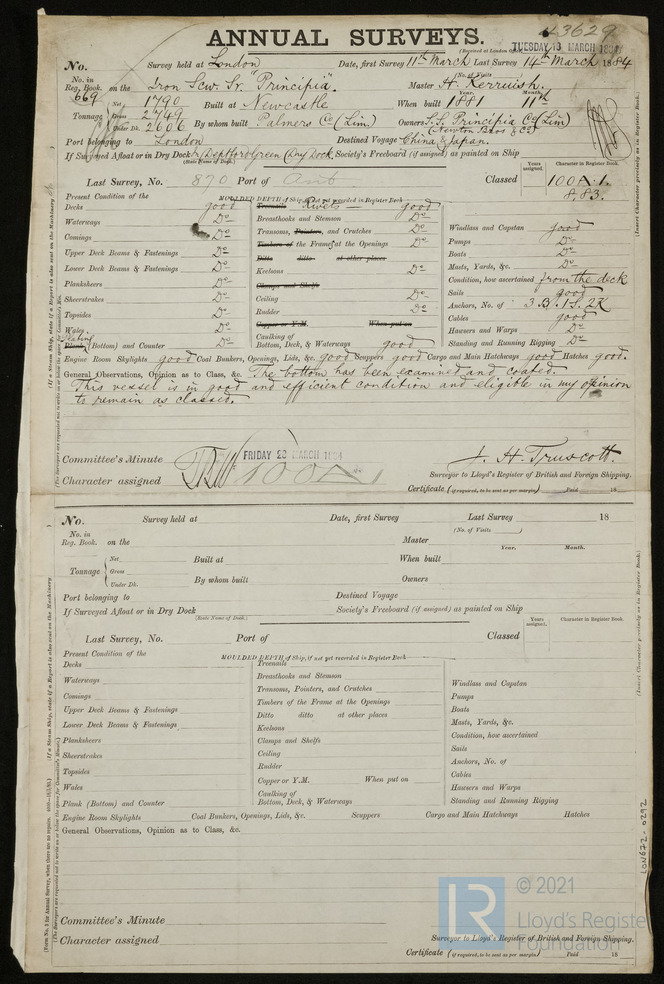 43629
ANNUAL SURVEYS.
(Received at London Office TUESDAY 18 MARCH 1884
No. Survey held at London Date, first Survey 11th March Last Survey 14th March 1884
(No. of Visits )
No. in Reg. Book. 669 on the Iron Scw. Sr. "Principia". Master H. Kerruish.
Year. Month.
Tonnage Net 1790 Gross 2749 Under Dk. 2606 Built at Newcastle When built 1881 11th
By whom built Palmers Co (Lim) Owners S.S. Principia Co (Lim)
(Newton Bros & Co)
Port belonging to London Destined Voyage China & Japan.
If Surveyed Afloat or in Dry Dock Deptford Green Dry Dock. Society's Freeboard (if assigned) as painted on Ship
(State Name of Dock.)
Last Survey, No. 870 Port of Ant Classed Years assigned. Character in Register Book. 100A.1.
8,83.
Present Condition of the MOULDED DEPTH of Ship, if not yet recorded in Register Book
Decks good Treenails Rivets good
Waterways Do Breasthooks and Stemson Do Windlass and Capstan good
Comings Do Transoms, Pointers, and Crutches Do Pumps Do
Timbers of the Frames at the Openings Do Boats Do
Upper Deck Beams & Fastenings Do Ditto ditto at other places Masts, Yards, &c. Do
Lower Deck Beams & Fastenings Do Keelsons Do Condition, how ascertained from the deck
Planksheers Do Clamps and Shelfs Sails good
Sheerstrakes Do Ceiling Do Anchors, No. of 3.B. 1S. 2K
Topsides Do Rudder Do Cables good
Wales Do Copper or Y.M. When put on Hawsers and Warps Do
Plating Plank (Bottom) and Counter Do Caulking of Bottom, Deck, & Waterways good Standing and Running Rigging Do
Engine Room Skylights good Coal Bunkers, Openings, Lids, &c. good Scuppers good Cargo and Main Hatchways good Hatches good.
General Observations, Opinion as to Class, &c. The bottom has been examined and coated.
This vessel is in good and efficient condition and eligible in my opinion
to remain as classed.
Committee's Minute FRIDAY 28 MARCH 1884
J. H. Truscott.
Character assigned 100A1
Surveyor to Lloyd's Register of British and Foreign Shipping.
Certificate (if required, to be sent as per margin) Paid 18
No. Survey held at Date, first Survey Last Survey 18
(No. of Visits )
No. in Reg. Book. on the Master
Year. Month.
Tonnage Net Gross Under Dk. Built at When built
By whom built Owners
Port belonging to Destined Voyage
If Surveyed Afloat or in Dry Dock Society's Freeboard (if assigned) as painted on Ship
(State Name of Dock.)
Last Survey, No. Port of Classed Years assigned. Character in Register Book.
Present Condition of the MOULDED DEPTH of Ship, if not yet recorded in Register Book
Decks Treenails
Waterways Breasthooks and Stemson Windlass and Capstan
Comings Transoms, Pointers, and Crutches Pumps
Timbers of the Frame at the Openings Boats
Upper Deck Beams & Fastenings Ditto ditto at other places Masts, Yards, &c.
Lower Deck Beams & Fastenings Keelsons Condition, how ascertained
Planksheers Clamps and Shelfs Sails
Sheerstrakes Ceiling Anchors, No. of
Topsides Rudder Cables
Wales Copper or Y.M. When put on Hawsers and Warps
Plank (Bottom) and Counter Caulking of Bottom, Deck, & Waterways Standing and Running Rigging
Engine Room Skylights Coal Bunkers, Openings, Lids, &c. Scuppers Cargo and Main Hatchways Hatches
General Observations, Opinion as to Class, &c.
Committee's Minute
Character assigned
Surveyor to Lloyd's Register of British and Foreign Shipping.
Certificate (if required, to be sent as per margin) Paid 18
(Insert Character precisely as in Register Book.)
(Insert Character precisely as in Register Book.)
LON672-0292
LR
© 2021
Lloyd's Register
Foundation